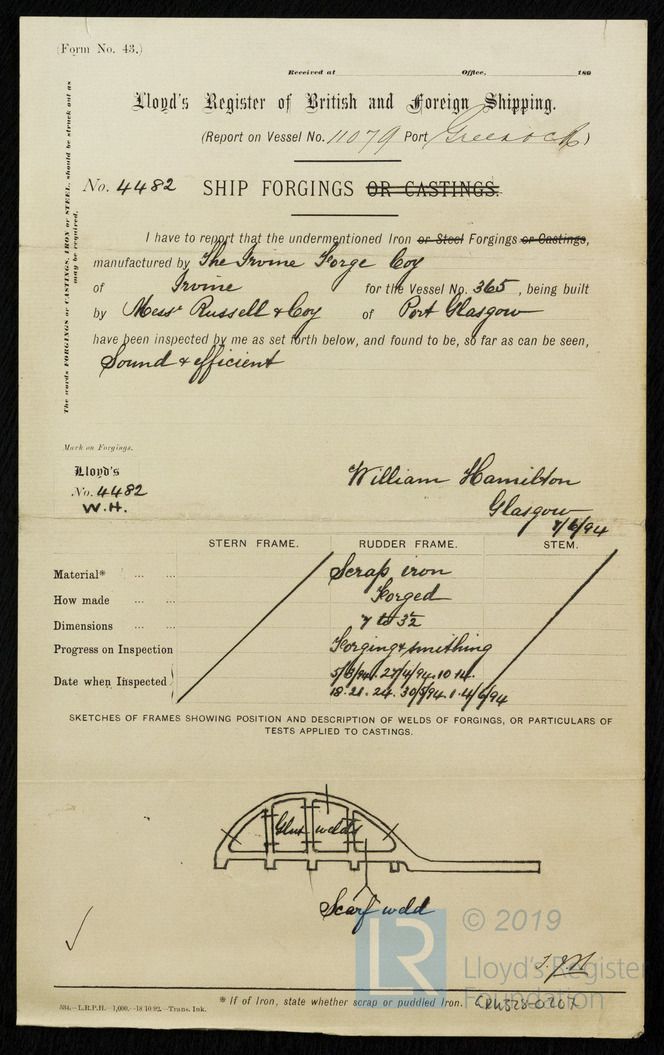 (Form No. 43.)
Received at Office, 180
Lloyd's Register of British and Foreign Shipping.
(Report on Vessel No. 11079 Port Greenock)
No. 4482 SHIP FORGINGS OR CASTINGS.
The words FORGINGS or CASTINGS, IRON or STEEL, should be struck out as
may be required.
I have to report that the undermentioned Iron or Steel Forgings or Castings,
manufactured by The Irvine Forge Coy
of Irvine for the Vessel No. 365, being built
by Messrs Russell & Coy of Port Glasgow
have been inspected by me as set forth below, and found to be, so far as can be seen,
Sound & efficient
Mark on Forgings.
Lloyd's
No. 4482
W.H.
William Hamilton
Glasgow
7/6/94
STERN FRAME. RUDDER FRAME. STEM.
Material* ... ... Scrap iron
How made ... ... Forged
Dimensions ... ... 7 to 3½
Progress on Inspection Forging & smithing
Date when Inspected 5/3/94. 27/4/94. 10. 14.
18. 21. 24. 30/5/94. 1. 4/6/94
SKETCHES OF FRAMES SHOWING POSITION AND DESCRIPTION OF WELDS OF FORGINGS, OR PARTICULARS OF
TESTS APPLIED TO CASTINGS.
Glut welds
Scarf weld
© 2019
LR
Lloyd's Register
Foundation
* If of Iron, state whether scrap or puddled Iron.
584.—L.R.P.H.—1,000.—18/10/92.—Trans. Ink.
LRF328-0207